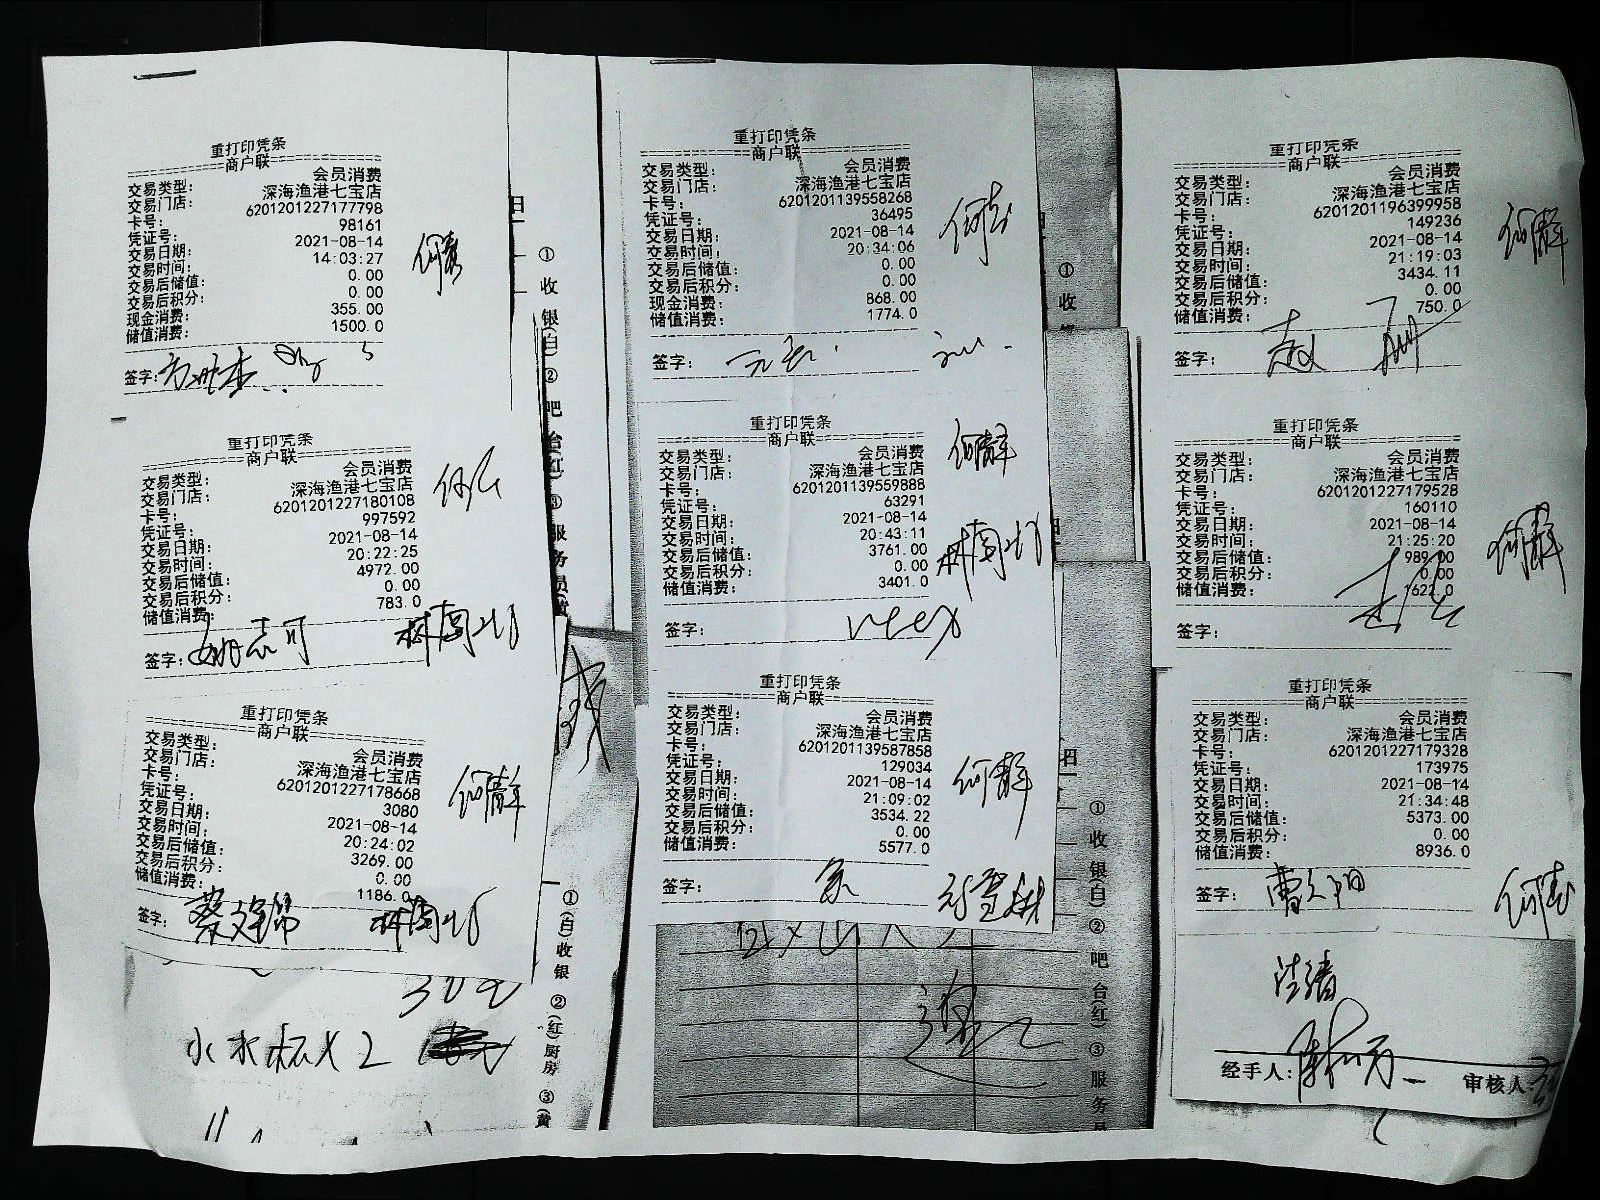 重打印凭条
==========商户联==========
交易类型: 会员消费
交易门店: 深海渔港七宝店
卡号: 6201201227177798
凭证号: 98161
交易日期: 2021-08-14
交易时间: 14:03:27
交易后储值: 0.00
交易后积分: 0.00
现金消费: 355.00
储值消费: 1500.0
签字:
重打印凭条
==========商户联==========
交易类型: 会员消费
交易门店: 深海渔港七宝店
卡号: 6201201227180108
凭证号: 997592
交易日期: 2021-08-14
交易时间: 20:22:25
交易后储值: 4972.00
交易后积分: 0.00
储值消费: 783.0
签字: 姚志可
重打印凭条
==========商户联==========
交易类型: 会员消费
交易门店: 深海渔港七宝店
卡号: 6201201227178668
凭证号: 3080
交易日期: 2021-08-14
交易时间: 20:24:02
交易后储值: 3269.00
交易后积分: 0.00
储值消费: 1186.0
签字:
小水杯X2
①收银(白)②吧台(红)③服务员(黄
①(白)收银 ②(红)厨房 ③(黄
重打印凭条
==========商户联==========
交易类型: 会员消费
交易门店: 深海渔港七宝店
卡号: 6201201139558268
凭证号: 36495
交易日期: 2021-08-14
交易时间: 20:34:06
交易后储值: 0.00
交易后积分: 0.00
现金消费: 868.00
储值消费: 1774.0
签字:
重打印凭条
==========商户联==========
交易类型: 会员消费
交易门店: 深海渔港七宝店
卡号: 6201201139559888
凭证号: 63291
交易日期: 2021-08-14
交易时间: 20:43:11
交易后储值: 3761.00
交易后积分: 0.00
储值消费: 3401.0
何静
签字:
重打印凭条
==========商户联==========
交易类型: 会员消费
交易门店: 深海渔港七宝店
卡号: 6201201139587858
凭证号: 129034
交易日期: 2021-08-14
交易时间: 21:09:02
交易后储值: 3534.22
交易后积分: 0.00
储值消费: 5577.0
何静
签字:
①收
①收银(白)②吧台(红)③服务员
重打印凭条
==========商户联==========
交易类型: 会员消费
交易门店: 深海渔港七宝店
卡号: 6201201196399958
凭证号: 149236
交易日期: 2021-08-14
交易时间: 21:19:03
交易后储值: 3434.11
交易后积分: 0.00
储值消费: 750.0
何静
签字:
重打印凭条
==========商户联==========
交易类型: 会员消费
交易门店: 深海渔港七宝店
卡号: 6201201227179528
凭证号: 160110
交易日期: 2021-08-14
交易时间: 21:25:20
交易后储值: 989.00
交易后积分: 0.00
储值消费: 1622.0
何静
签字:
重打印凭条
==========商户联==========
交易类型: 会员消费
交易门店: 深海渔港七宝店
卡号: 6201201227179328
凭证号: 173975
交易日期: 2021-08-14
交易时间: 21:34:48
交易后储值: 5373.00
交易后积分: 0.00
储值消费: 8936.0
签字:
经手人: 审核人: